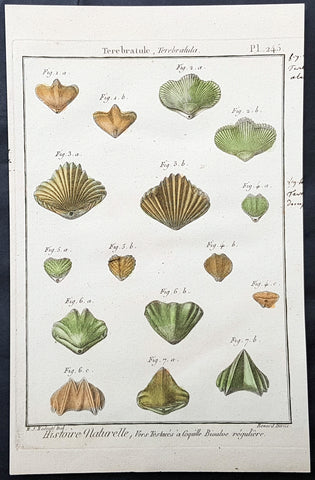 Terebratule, Terebratula. Pl. 245
Fig. 1. a.
Fig. 1. b.
Fig. 2. a.
Fig. 2. b.
Fig. 3. a.
Fig. 3. b.
Fig. 4. a.
Fig. 5. a.
Fig. 5. b.
Fig. 4. b.
Fig. 4. c
Fig. 6. a.
Fig. 6. b.
Fig. 7. b
Fig. 6. c
Fig. 7. a.
Benard Direx
Histoire Naturelle, Vers Testacés à Coquille Bivalve régulière.